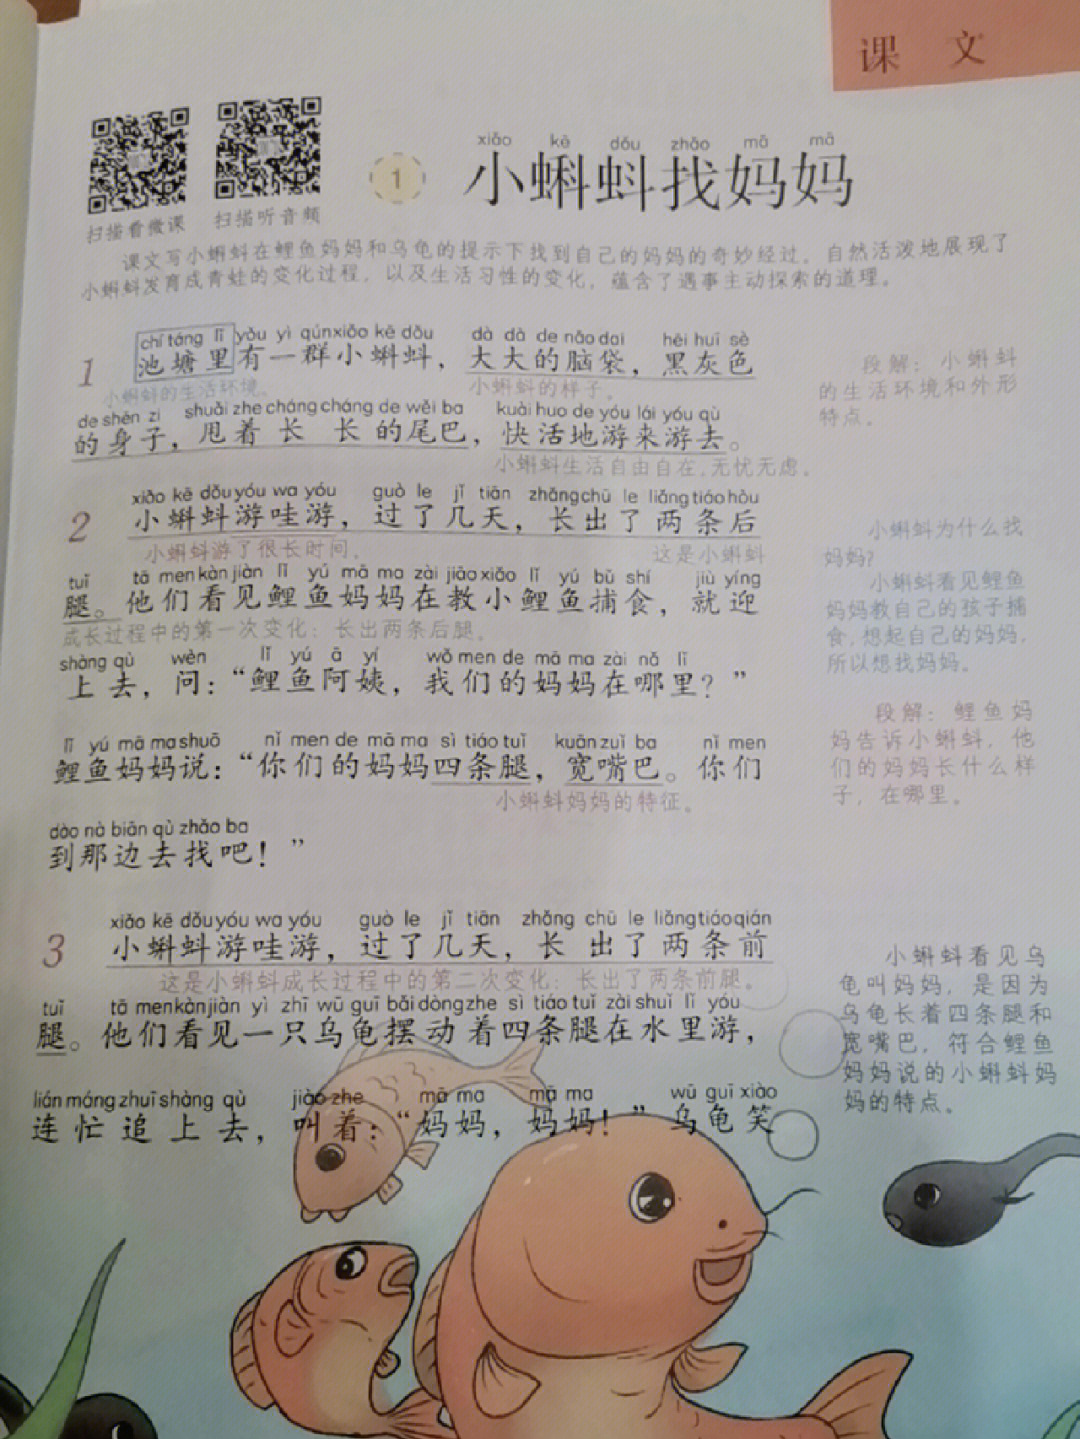 课 文
扫描看微课 扫描听音频
xiǎo kē dǒu zhǎo mā mā
1 小蝌蚪找妈妈
课文写小蝌蚪在鲤鱼妈妈和乌龟的提示下找到自己的妈妈的奇妙经过，自然活泼地展现了
小蝌蚪发育成青蛙的变化过程，以及生活习性的变化，蕴含了遇事主动探索的道理。
chí táng lǐ yǒu yì qún xiǎo kē dǒu dà dà de nǎo dai hēi huī sè
1 池塘里有一群小蝌蚪，大大的脑袋，黑灰色
小蝌蚪的生活环境。 小蝌蚪的样子。
de shēn zi shuǎi zhe cháng cháng de wěi ba kuài huo de yóu lái yóu qù
的身子，甩着长长的尾巴，快活地游来游去。
小蝌蚪生活自由自在，无忧无虑。
段解：小蝌蚪
的生活环境和外形
特点。
xiǎo kē dǒu yóu wa yóu guò le jǐ tiān zhǎng chū le liǎng tiáo hòu
2 小蝌蚪游哇游，过了几天，长出了两条后
小蝌蚪游了很长时间。 这是小蝌蚪
tuǐ tā men kàn jiàn lǐ yú mā ma zài jiāo xiǎo lǐ yú bǔ shí jiù yíng
腿。他们看见鲤鱼妈妈在教小鲤鱼捕食，就迎
成长过程中的第一次变化：长出两条后腿。
shàng qù wèn lǐ yú ā yí wǒ men de mā ma zài nǎ lǐ
上去，问：“鲤鱼阿姨，我们的妈妈在哪里？”
lǐ yú mā ma shuō nǐ men de mā ma sì tiáo tuǐ kuān zuǐ ba nǐ men
鲤鱼妈妈说：“你们的妈妈四条腿，宽嘴巴。你们
小蝌蚪妈妈的特征。
dào nà biān qù zhǎo ba
到那边去找吧！”
小蝌蚪为什么找
妈妈？
小蝌蚪看见鲤鱼
妈妈教自己的孩子捕
食，想起自己的妈妈，
所以想找妈妈。
段解：鲤鱼妈
妈告诉小蝌蚪，他
们的妈妈长什么样
子，在哪里。
xiǎo kē dǒu yóu wa yóu guò le jǐ tiān zhǎng chū le liǎng tiáo qián
3 小蝌蚪游哇游，过了几天，长出了两条前
这是小蝌蚪成长过程中的第二次变化：长出了两条前腿。
tuǐ tā men kàn jiàn yì zhī wū guī bǎi dòng zhe sì tiáo tuǐ zài shuǐ lǐ yóu
腿。他们看见一只乌龟摆动着四条腿在水里游，
lián máng zhuī shàng qù jiào zhe mā ma mā ma wū guī xiào
连忙追上去，叫着：“妈妈，妈妈！”乌龟笑
小蝌蚪看见乌
龟叫妈妈，是因为
乌龟长着四条腿和
宽嘴巴，符合鲤鱼
妈妈说的小蝌蚪妈
妈的特点。